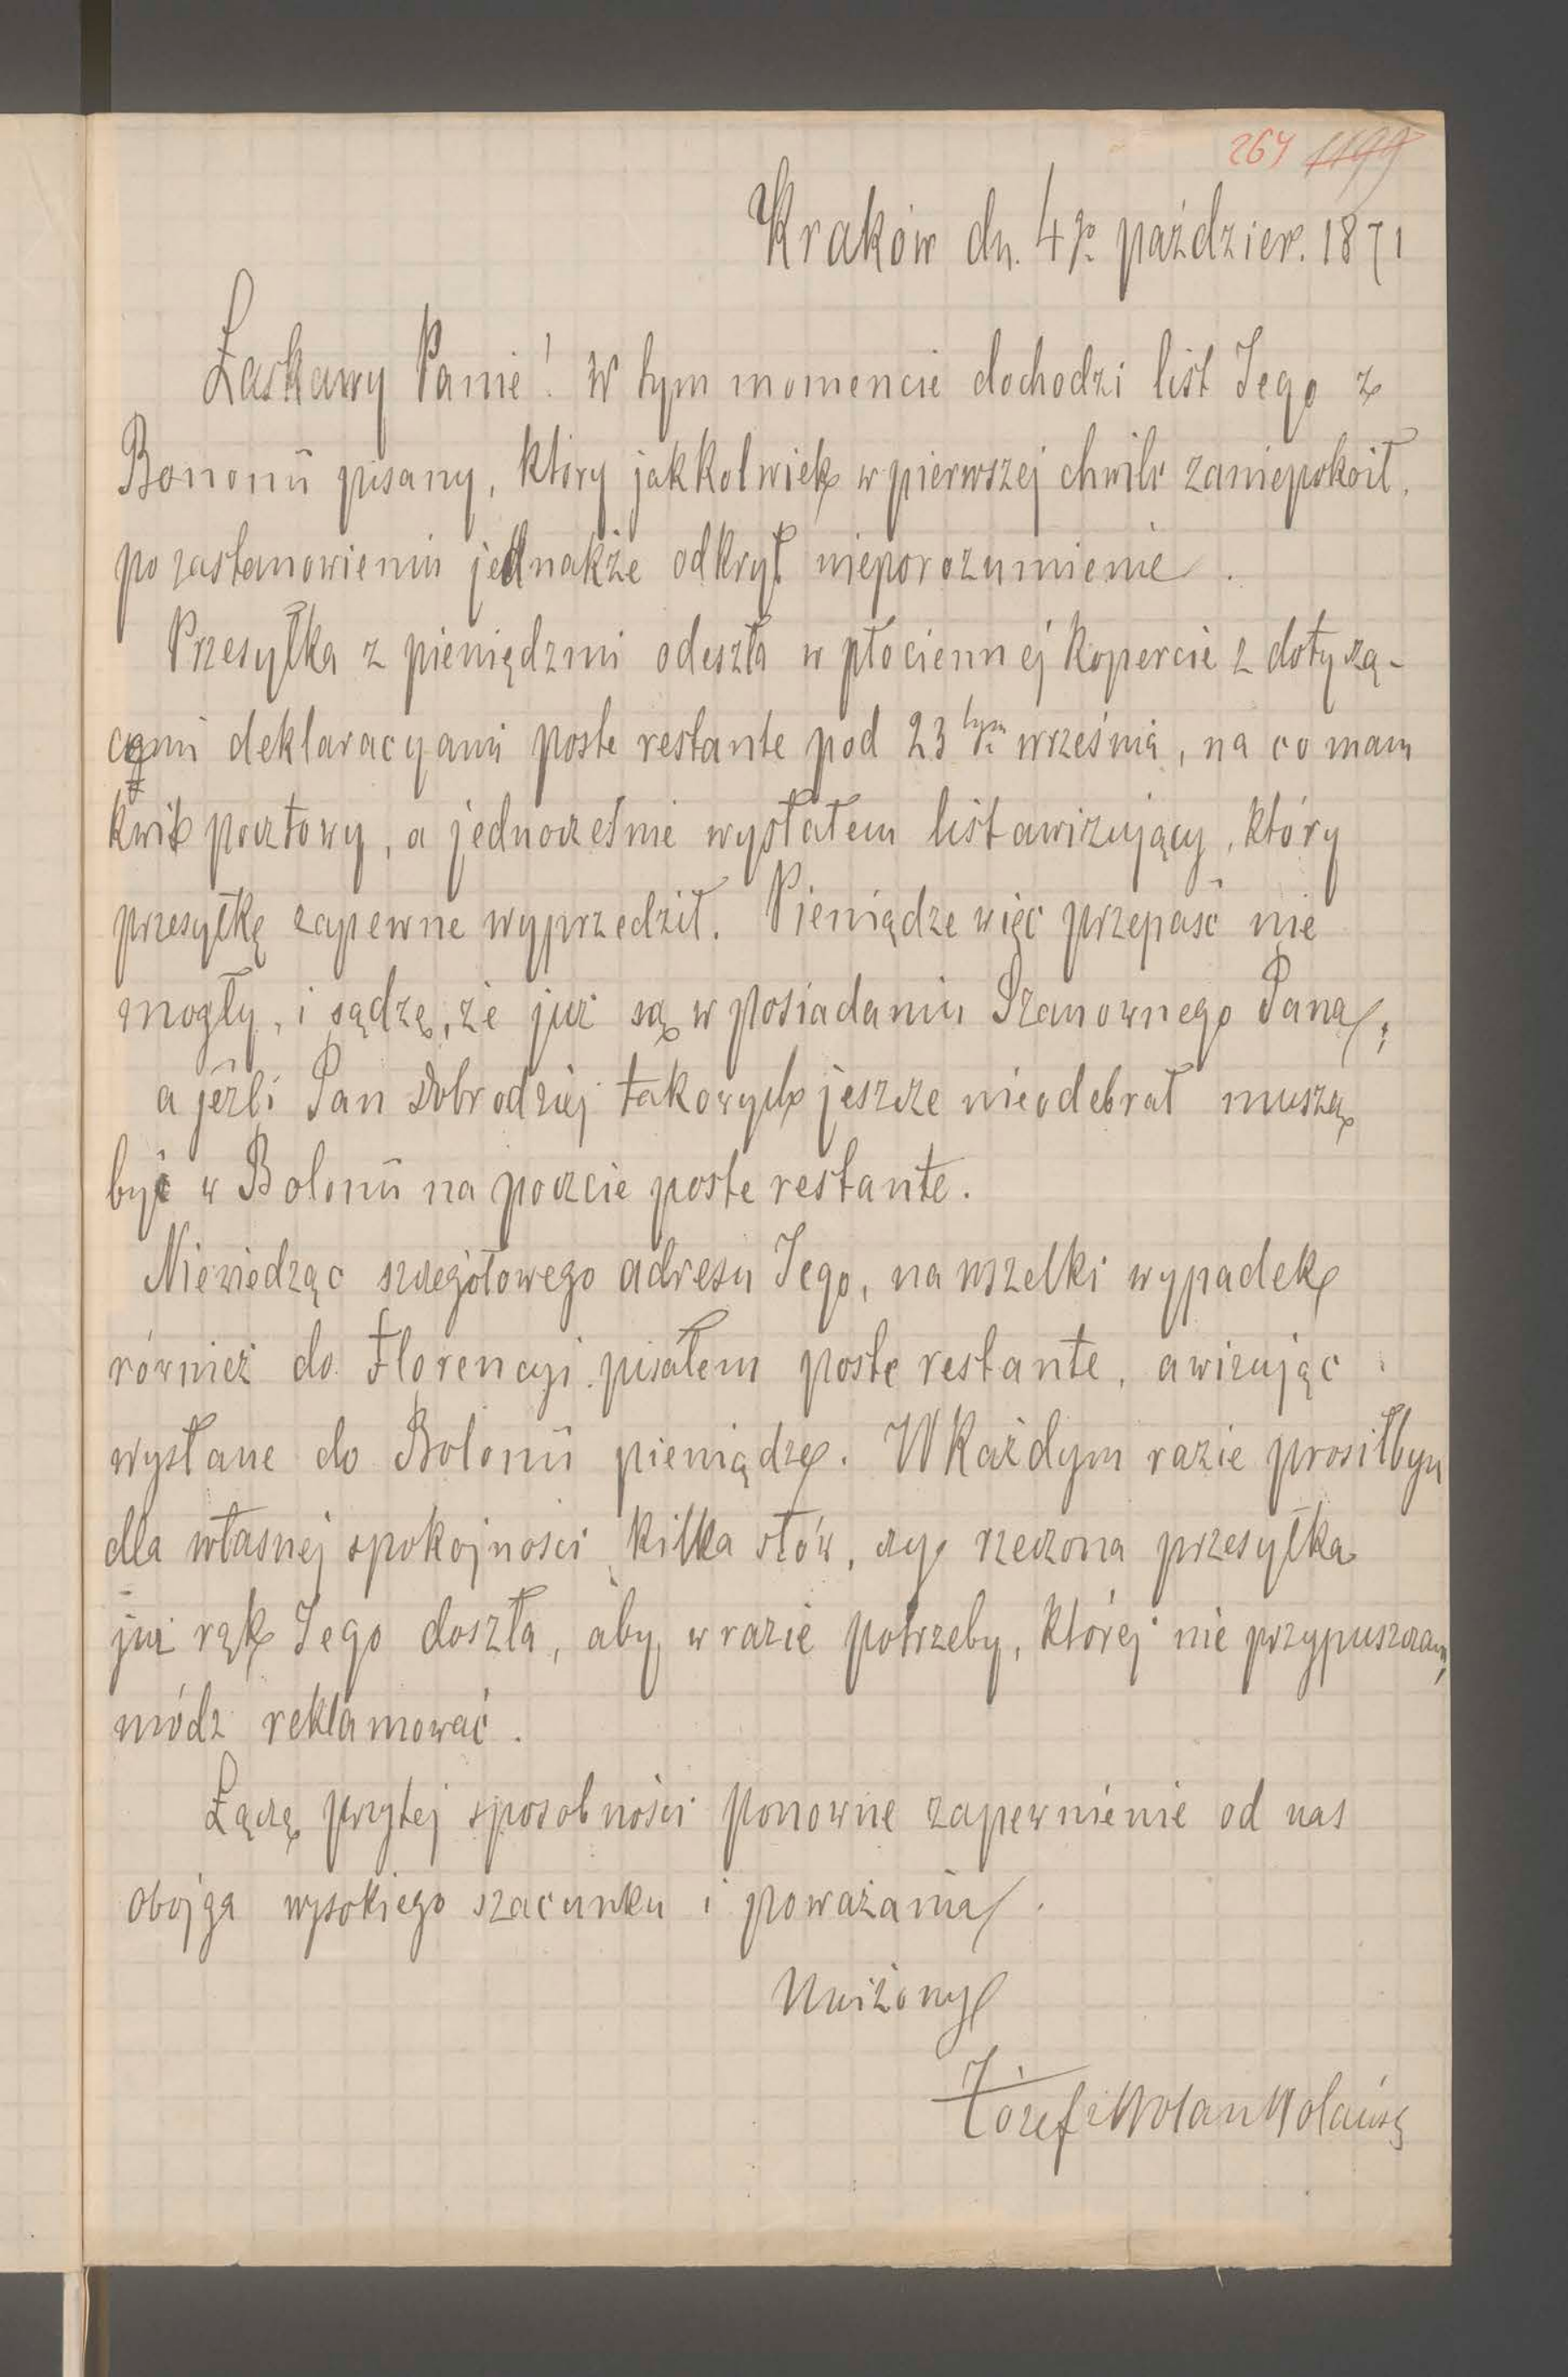 264 1199
Kraków dn. 4go paździer. 1871
Łaskawy Panie! W tym momencie dochodzi list Jego z
Bononii pisany, który jakkolwiek w pierwszej chwili zaniepokoił,
po zastanowieniu jednakże odkrył nieporozumienie.
Przesyłka z pieniędzmi odeszła w płóciennéj kopercie z dotyczą-
cymi deklaracyami poste restante pod 23 tym września, na co mam
kwit pocztowy, a jednocześnie wysłałem list awizujący, który
przesyłkę zapewne wyprzedził. Pieniądze więc przepaść nie
mogły, i sądzę, że już są w posiadaniu Szanownego Pana;
a jeżli Pan Dobrodziej takowych jeszcze nieodebrał muszą
być w Bolonii na poczcie poste restante.
Niewiedząc szczegółowego adresu Jego, na wszelki wypadek
również do Florencyi pisałem poste restante, awizując
wysłane do Bolonii pieniądze. W każdym razie prosiłbym
dla własnej spokojności kilka słów, czy rzeczona przesyłka
już rąk Jego doszła, aby w razie potrzeby, której nie przypuszczam,
módz reklamować.
Łączę przytej sposobności ponowne zapewnienie od nas
obojga wysokiego szacunku i poważania.
Uniżony
Józef z Wolan Wolański